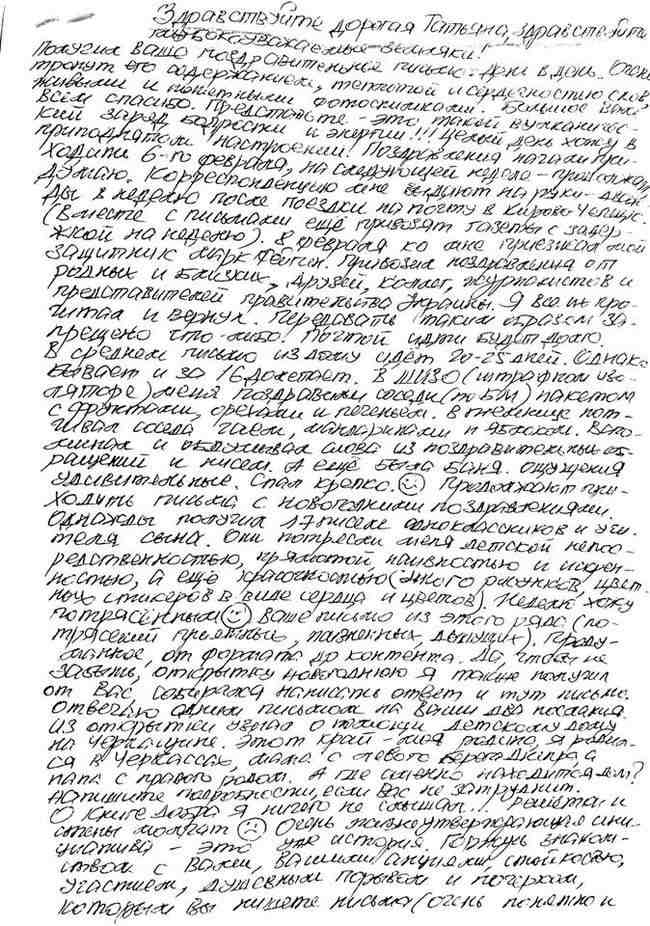 Здравствуйте дорогая Татьяна, здравствуйте
глубокоуважаемые земляки!
Получил ваше поздравительное письмо. День в день. Очень
тронут его содержанием, теплотой и сердечностью слов,
живыми и понятными фотоснимками. Большое Вам
всем спасибо. Представьте - это такой вулканичес-
кий заряд бодрости и энергии!!! Целый день хожу в
приподнятом настроении! Поздравления начали при-
ходить 6-го февраля, на следующей неделе - продолжат
думаю. Корреспонденцию мне выдают на руки
ды в неделю после поездки на почту в Кирово-Чепецк.
(Вместе с письмами ещё привозят газеты с задер-
жкой на неделю). 8 февраля ко мне приезжал мой
защитник Марк Фейгин. Привозил поздравления от
родных и близких, друзей, коллег, журналистов и
представителей правительства Украины. Я все их про-
читал и вернул. Передавать таким образом за-
прещено что-либо. Почтой идти будет долго.
В среднем письмо из дому идёт 20-25 дней. Однако
бывает и за 16 долетает. В ШИЗО (штрафном изо-
ляторе) меня поздравили соседи (по БМ) пакетом
с фруктами, орехами и печеньем. В темнице пот-
чивал соседа чаем, мандаринами и яблоком. Вспо-
минал и обдумывал слова из поздравительных об-
ращений и писем. А ещё была баня. Ощущения
удивительные. Спал крепко. ☺ Продолжают при-
ходить письма с новогодними поздравлениями.
Однажды получил 17 писем одноклассников и учи-
теля сына. Они потрясли меня детской непос-
редственностью, прямотой, наивностью и искрен-
ностью, а ещё красочностью (много рисунков, цвет-
ных стикеров в виде сердца и цветов). Неделю хожу
потрясённым ☺ Ваше письмо из этого ряда (по-
трясений приятных, жизненных, дышущих). Проду-
манное, от формата до контента. Да, чтобы не
забыть, открытку новогоднюю я также получил
от Вас. Собирался написать ответ и тут письмо.
Отвечаю одним письмом на ваши два послания.
Из открытки узнал о помощи детскому дому
на Черкащине. Этот край - моя родина, я родил-
ся в Черкассах, мама с левого берега Днепра, а
папа с правого родом. А где именно находится дом?
Напишите подробности, если Вас не затруднит.
О Книге добра я ничего не слышал!.. Решётки и
стены молчат ☹ Очень жизнеутверждающая ини-
циатива - это уже история. Горжусь знаком-
ством с Вами, Вашими акциями, стойкостью,
участием, душевным порывом и почерком,
которым Вы пишете письма (очень понятно и